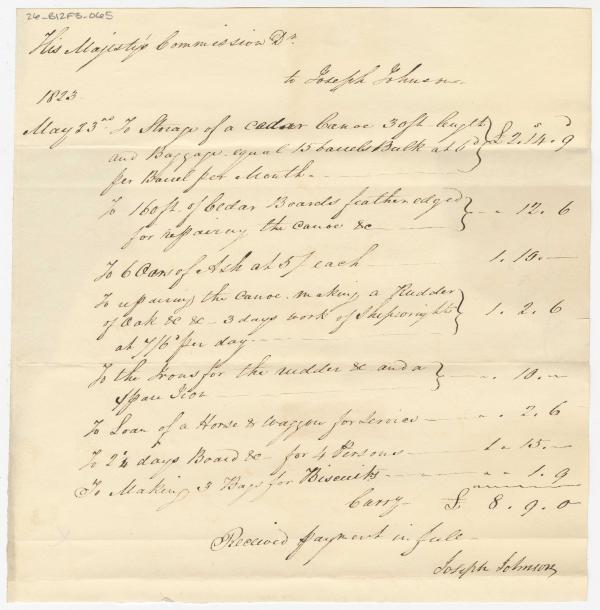 26-B12F3-065
His Majesty's Commission Dr.
to Joseph Johnson
1823
May 23rd To Storage of a cedar Canoe 30ft length
and Baggage equal 15 barrels Bulk at 6d
per Barrel per Month £ 2. 14. 9
To 160 ft. of Cedar Boards feather edged
for repairing the canoe &c 12. 6
To 6 Oars of Ash at 5/ each 1. 10. —
To repairing the canoe. making a Rudder
of Oak &c &c 3 days work of Shipwright
at 7/6d per day 1. 2. 6
To the Irons for the rudder &c and a
spare Iron 10. —
To Loan of a Horse & Waggon for service 2. 6
To 2 1/4 days Board &c for 4 Persons 1. 15. —
To Making 3 Bags for Biscuits 1. 9
Carry £ 8. 9. 0
Received payment in full
Joseph Johnson